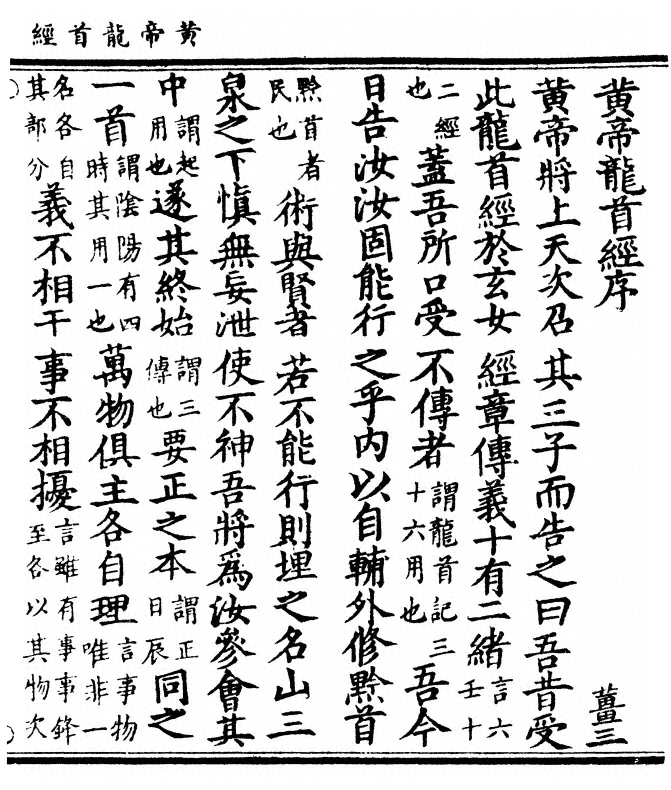 黃帝龍首經
黃帝龍首經序 薑三
黃帝將上天次召其三子而告之曰吾昔受
此龍首經於玄女經章傳義十有二緒言六壬十
二經也蓋吾所口受不傳者謂龍首記三十六用也吾今
日告汝汝固能行之乎內以自輔外修黔首
黔首者民也術與賢者若不能行則埋之名山三
泉之下慎無妄泄使不神吾將為汝參會其
中謂起用也遂其終始謂三傳也要正之本謂正日辰同之
一首謂陰陽有四時其用一也萬物俱主各自理言事物唯非一
名各自其部分義不相干事不相擾言雖有事事鋒至各以其物次